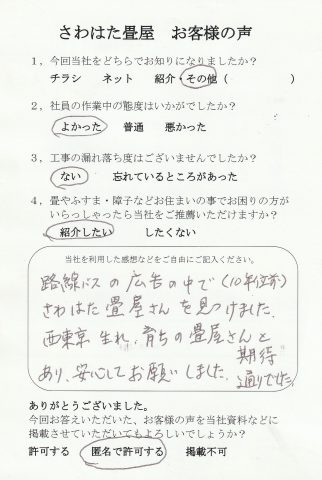 さわはた畳屋　お客様の声
1，今回当社をどちらでお知りになりましたか？
チラシ　ネット　紹介・その他（　　　　　）
2，社員の作業中の態度はいかがでしたか？
よかった　普通　悪かった
3，工事の漏れ落ち度はございませんでしたか？
ない　忘れているところがあった
4，畳やふすま・障子などお住まいの事でお困りの方が
いらっしゃったら当社をご推薦いただけますか？
紹介したい　したくない
当社を利用した感想などをご自由にご記入ください。
路線バスの広告の中で（10年位前）
さわはた畳屋さんを見つけました。
西東京生れ、育ちの畳屋さんと
あり、安心してお願いしました。期待
通りでした。
ありがとうございました。
今回お答えいただいた、お客様の声を当社資料などに
掲載させていただいてもよろしいでしょうか？
許可する　匿名で許可する　掲載不可